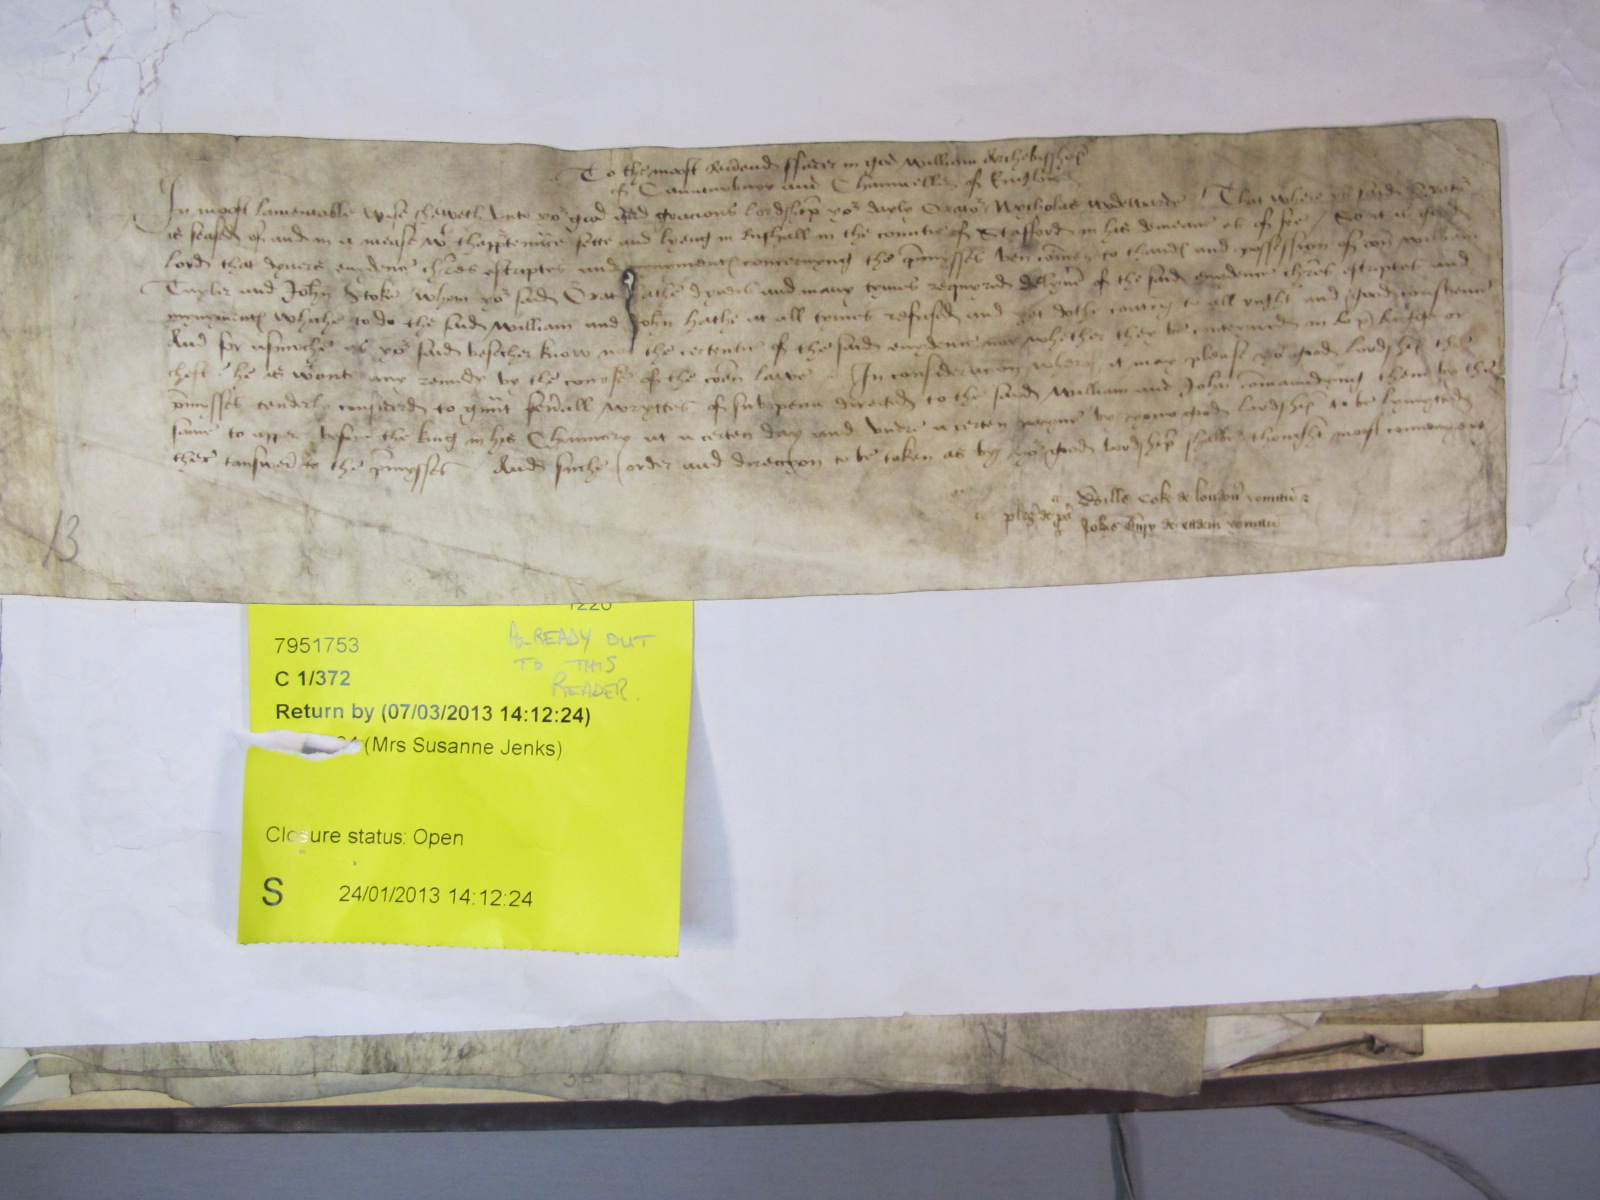 To the moost Revd̄end ffader in god William Archebisshop̄
of Caunterbury and Chaunceller of Englond
In moost lamentable wise sheweth unto yor good and gracious lordship yor dayly Orator Nycholas That where yor said Orator
is seased of and in a mease wt thapp̄tenn̄ce sette and lyeng in Russhall in the countie of Stafford in his demean as of fee / So it is good
lord that dyvers evydenc chr̄es escriptes and mynyment concernyng the p̄mysses ben comen to thand and possession of oon William
Tayler and John Stoke whom yor said Orat hathe dyvers and many tymes requyred delyv̄e of the said evydence chr̄es escriptes and
mynyment whiche to do the said William and John hathe at all tymes refused and yet dothe contrary to all right and good conscience
And for asmoche as yor said besecher know not the certentie of the said evydence nor whether they be conteyned in box bagge or
chest he is wᵗout any remedy by the course of the com̄en lawe In consideracon wherof it may please yor good lordship the
p̄mysses tenderly considered to graunt sev̄all wryttes of subpena directed to the said William and John com̄aundyng them by the
same to apper before the king in his Chauncery at a certen day and undre a certen peyne by youre good lordship to be lymyted
ther tanswer to the p̄mysses And suche order and direccyon to be taken as by yor good lordship shalbe thought moost convenyent
pleg de ꝓs Wills Coke de london yoman
Johes de eadem yoman
13
1220
7951753
ALREADY OUT
TO THIS
READER.
C 1/372
Return by (07/03/2013 14:12:24)
(Mrs Susanne Jenks)
Closure status: Open
S 24/01/2013 14:12:24
20